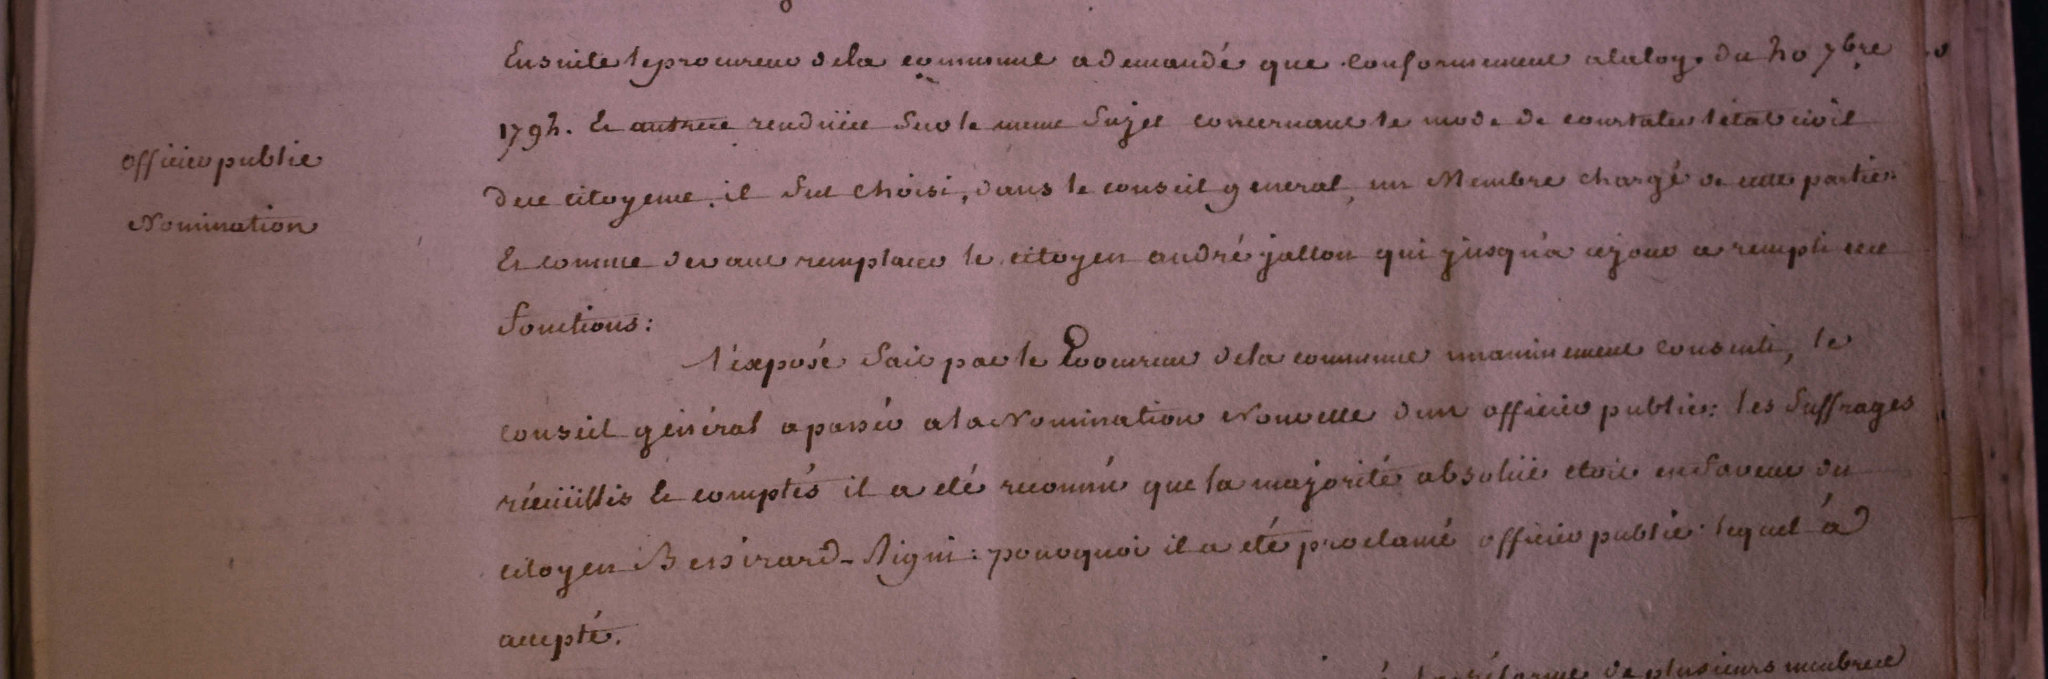 Ensuite le procureur dela commune a demandé que conformement alaloy du 20 7bre
1792. Et autres rendüës sur le meme sujet concernant le mode de constater l'état civil
des citoyens, il fut choisi, dans le conseil general, un Membre chargé de cette partie.
officier public
Nomination
Et comme devant remplacer le citoyen andré jallon qui jusqu'a cejour a rempli ces
fonctions:
l'exposé fait par le Procureur dela commune unanimement consenti, le
conseil général a passé a la Nomination Nouvelle d'un officier public: les suffrages
récüillis et comptés il a été reconnu que la majorité absolüe etoit en faveur du
citoyen : pourquoi il a été proclamé officier public lequel à
accepté.
réforme de plusieurs membres